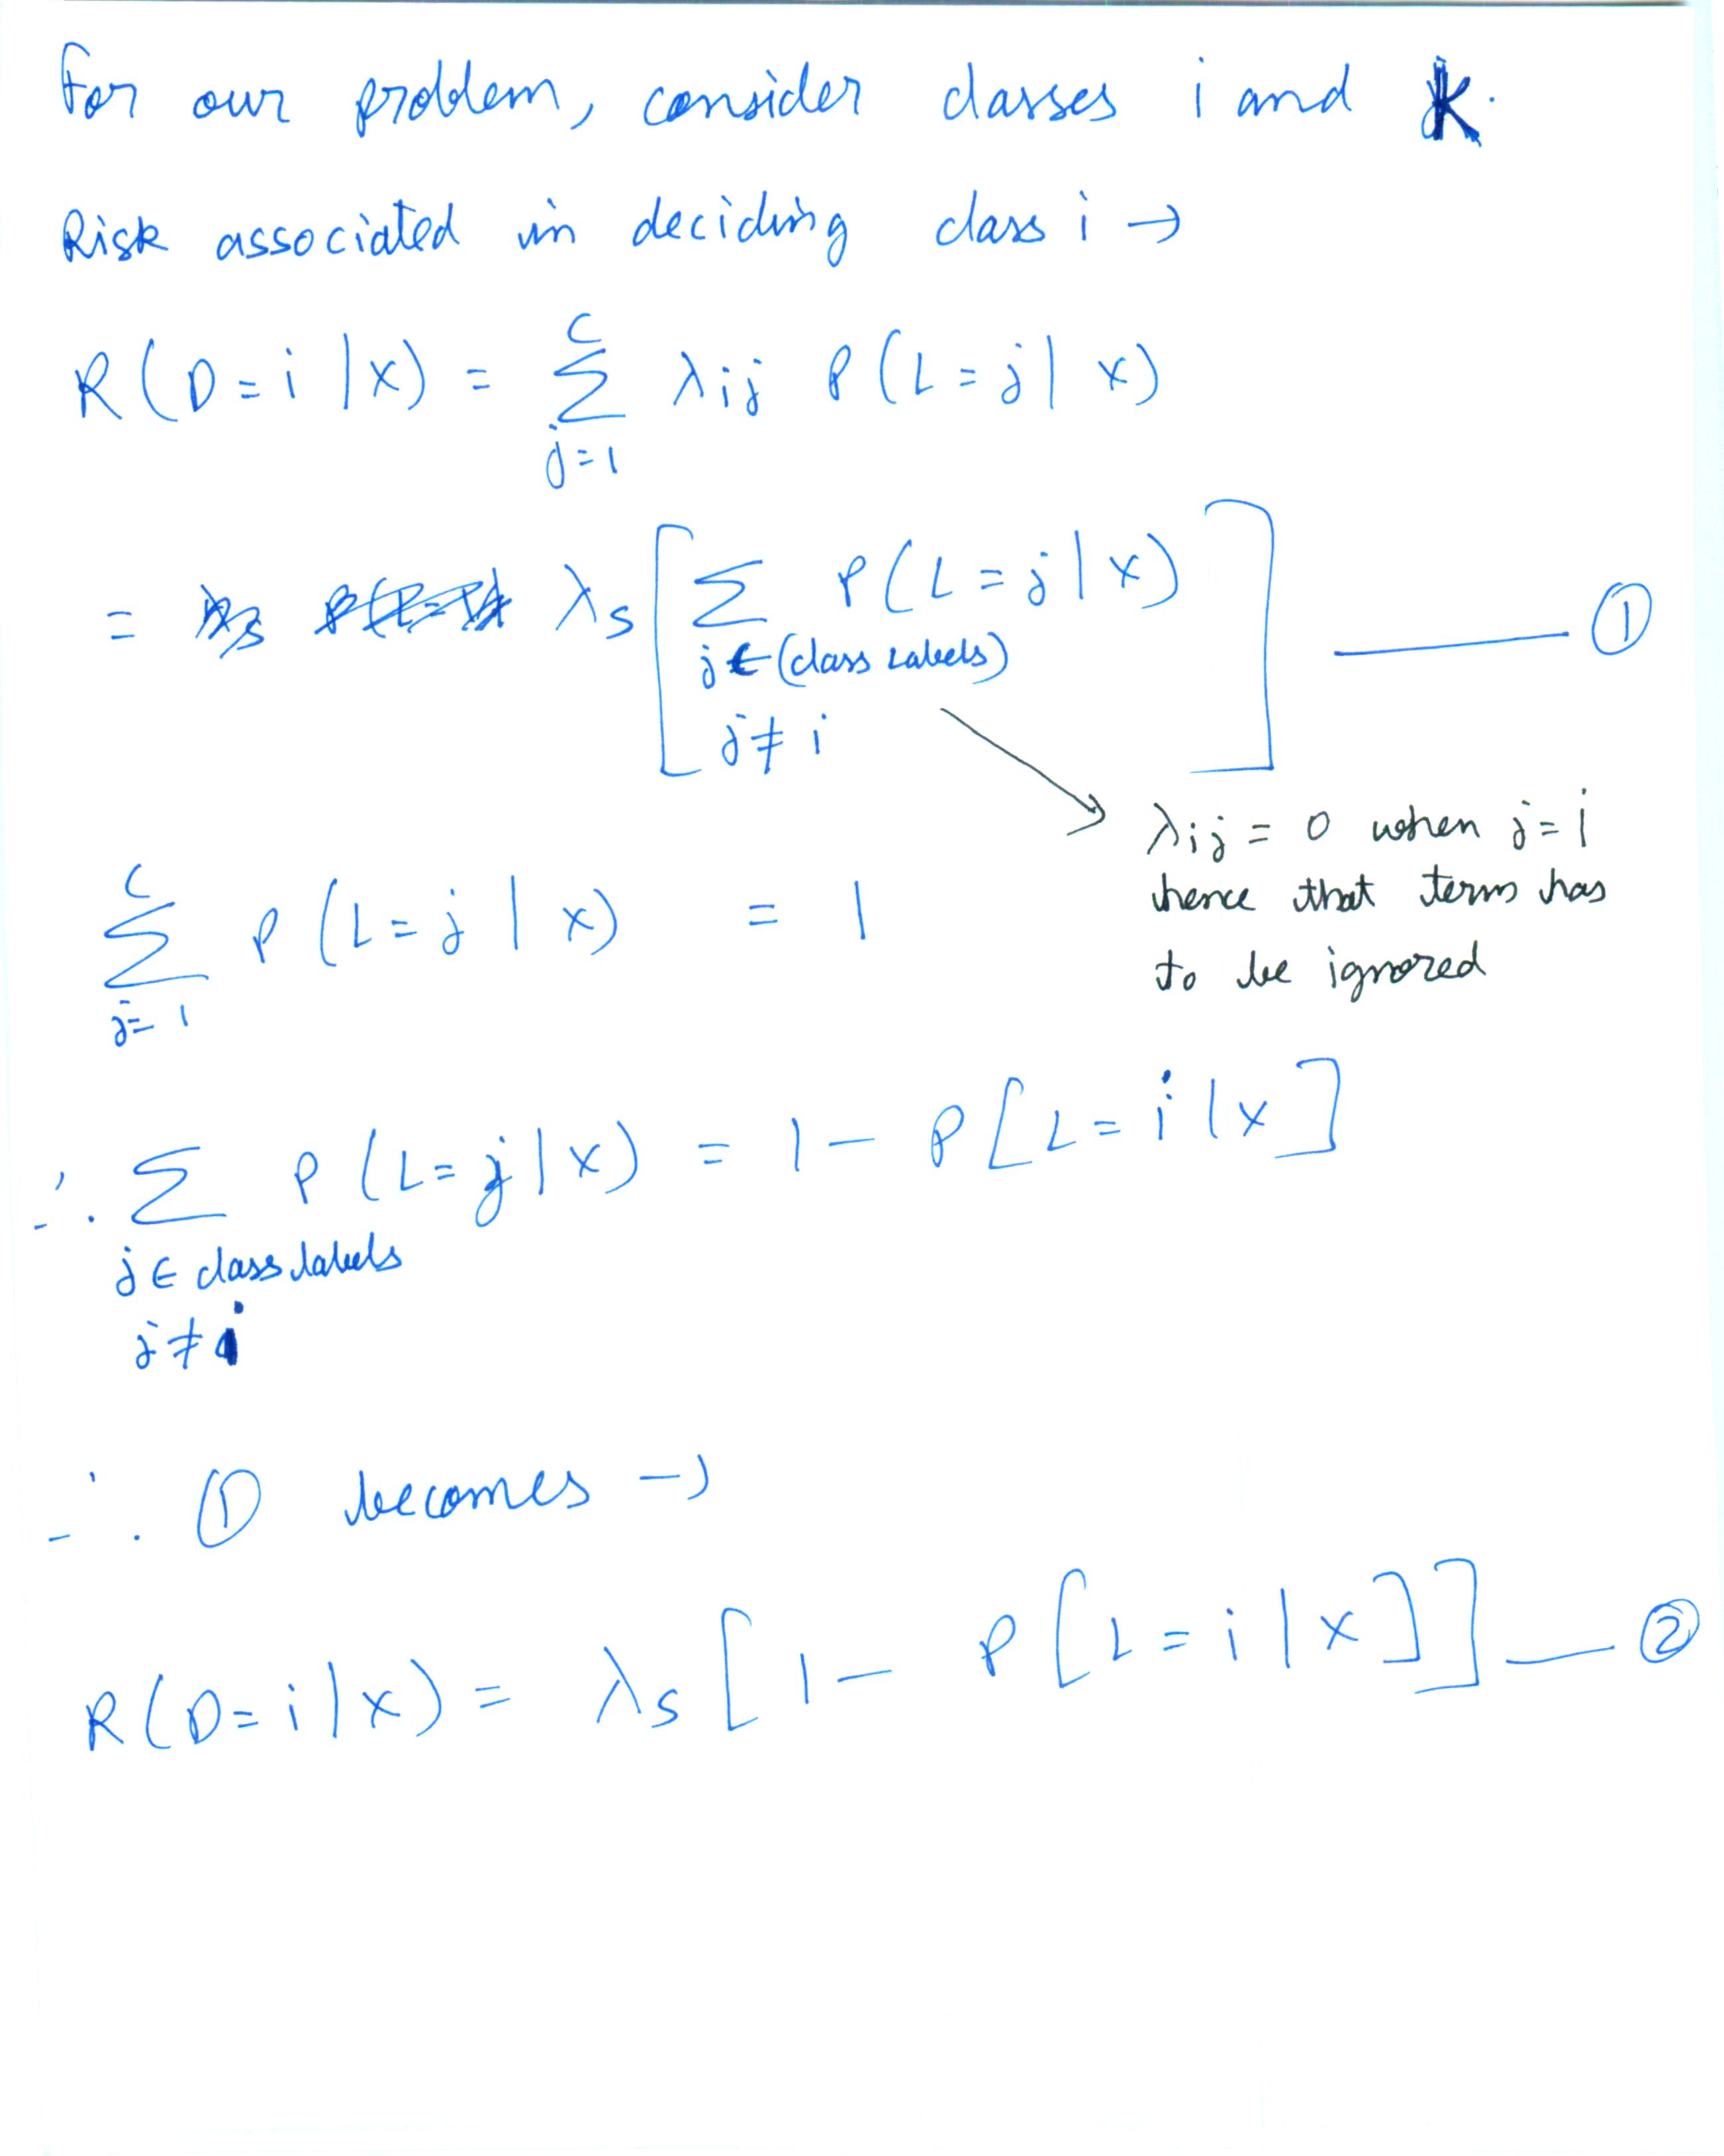 For our problem, consider classes i and K.
Risk associated in deciding class i →
R(D=i|x) = ∑_{j=1}^{C} λij P(L=j|x)
= λs [ ∑_{j∈(class labels) j≠i} P(L=j|x) ] —— ①
λij = 0 when j=i
hence that term has
to be ignored
∑_{j=1}^{C} P(L=j|x) = 1
∴ ∑_{j∈class labels j≠i} P(L=j|x) = 1 - P[L=i|x]
∴ ① becomes →
R(D=i|x) = λs [1 - P[L=i|x]] — ②